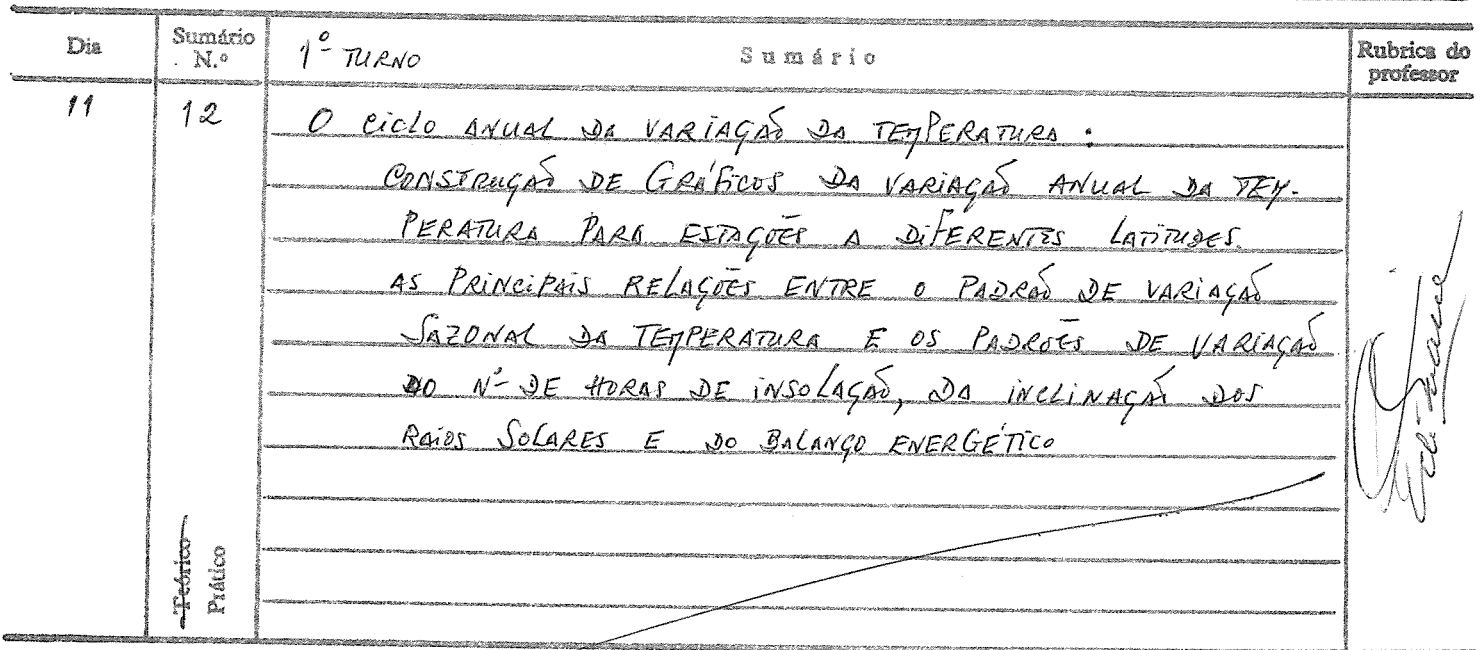 Dia
Sumário N.º
1º TURNO
Sumário
Rubrica do professor
11
12
O CICLO ANUAL DA VARIAÇÃO DA TEMPERATURA :
CONSTRUÇÃO DE GRÁFICOS DA VARIAÇÃO ANUAL DA TEM-
PERATURA PARA ESTAÇÕES A DIFERENTES LATITUDES.
AS PRINCIPAIS RELAÇÕES ENTRE O PADRÃO DE VARIAÇÃO
SAZONAL DA TEMPERATURA E OS PADRÕES DE VARIAÇÃO
DO Nº DE HORAS DE INSOLAÇÃO, DA INCLINAÇÃO DOS
RAIOS SOLARES E DO BALANÇO ENERGÉTICO
Teórico
Prático